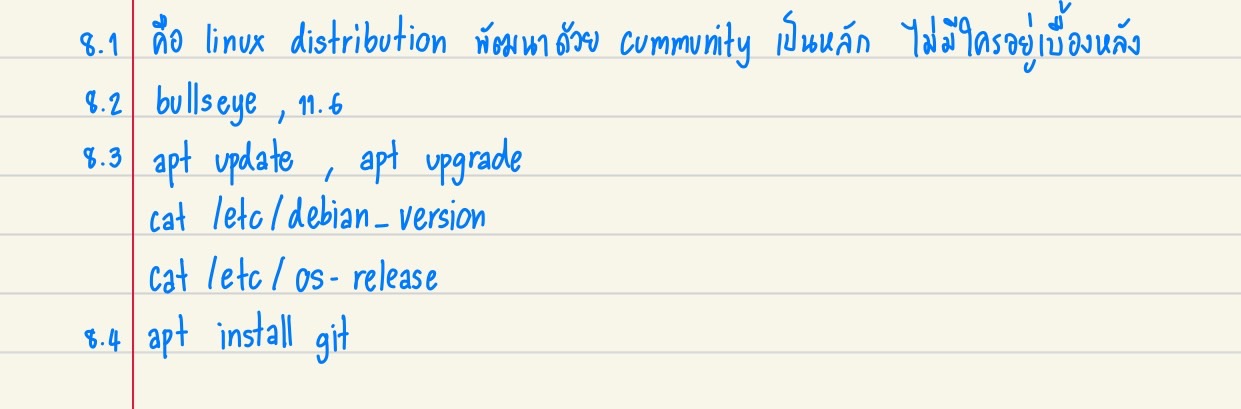 8.1 คือ linux distribution พัฒนาด้วย cummunity เป็นหลัก ไม่มีใครอยู่เบื้องหลัง
8.2 bullseye , 11.6
8.3 apt update , apt upgrade
cat /etc/debian_version
cat /etc/os-release
8.4 apt install git